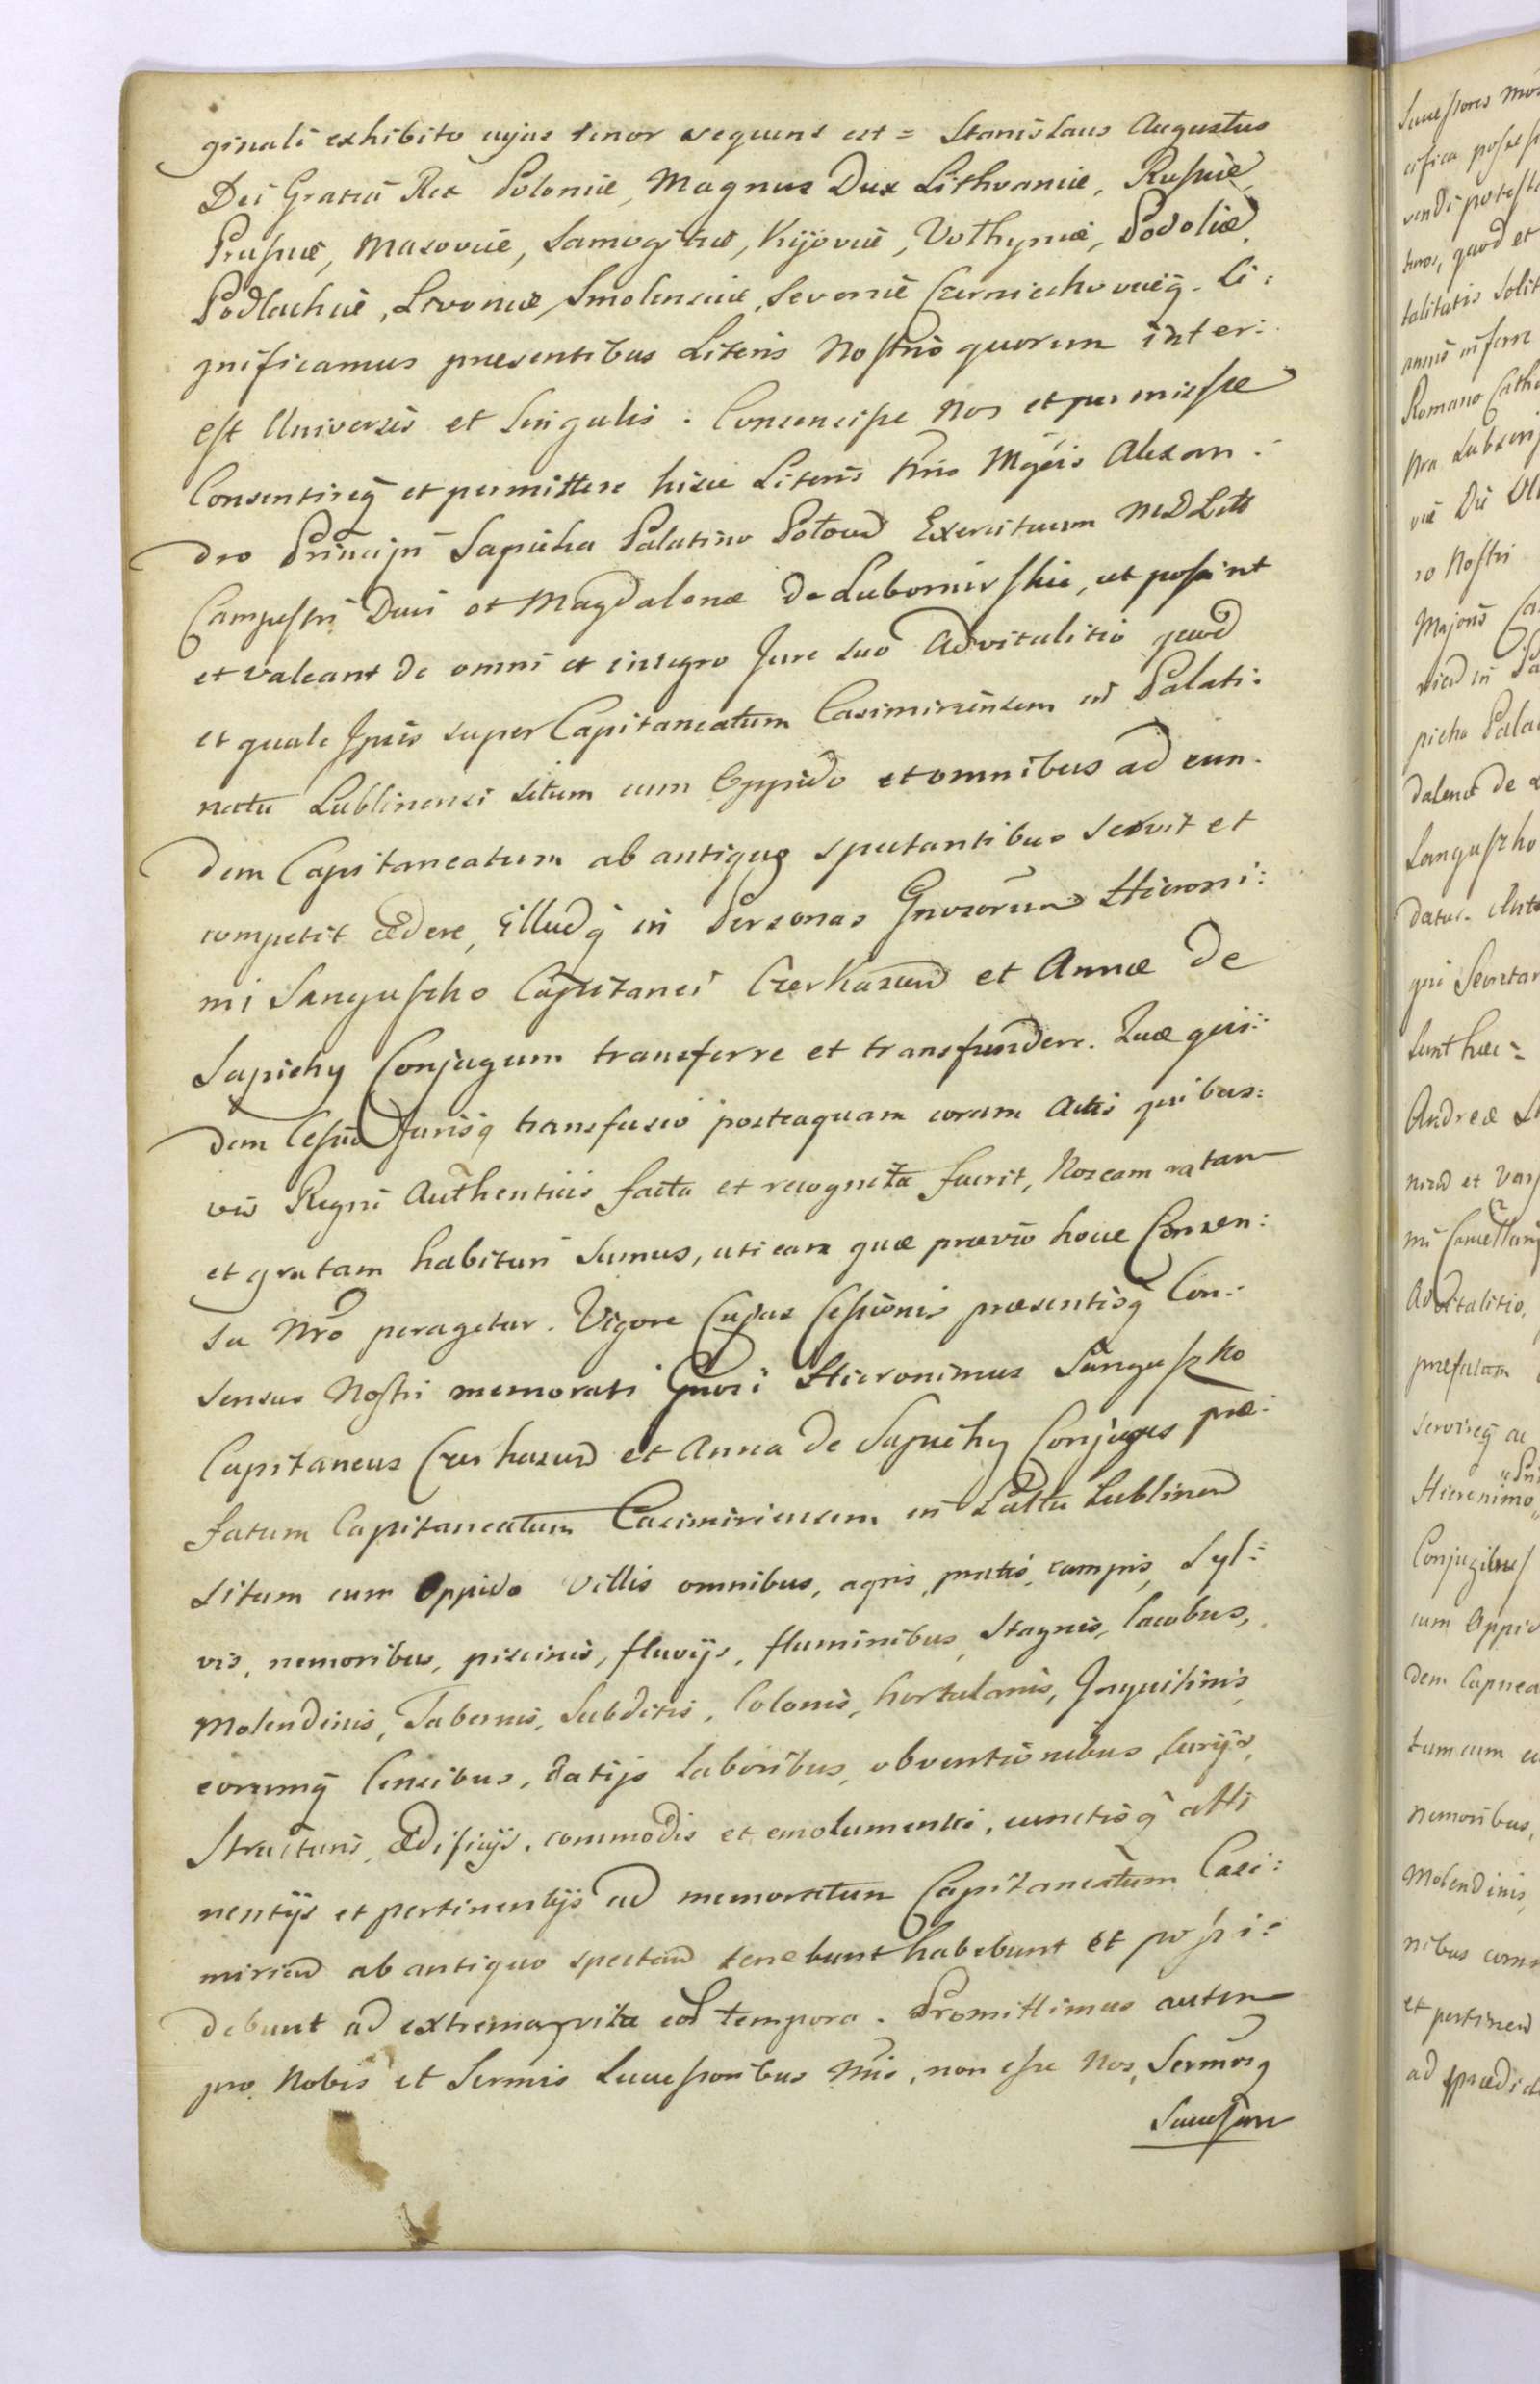 ginali exhibito cujus tenor sequens est = Stanislaus Augustus
Dei Gratiâ Rex Poloniæ, Magnus Dux Lithvaniæ, Rußiæ,
Prußiæ, Masoviæ, Samogitiæ, Kijoviæ, Volhyniæ, Podoliæ,
Podlachiæ, Livoniæ, Smolensciæ, Severiæ Czerniechoviæq. Si:
gnificamus præsentibus Literis Nostris quorum inter:
est Universis et Singulis. Consensiße Nos et permisiße
Consentireq̃ et permittere hisce Literis Nris Mgcis Alexan:
dro Principi Sapieha Palatino Polocen Exercituum MDLitt
Campestri Duci et Magdalenæ de Lubomirskie, ut poßint
et valeant de omni et integro Jure suo Advitalitio quod
et quale Ipsis super Capitaneatum Casimiriensem in Palati:
natu Lublinensi situm cum Oppido et omnibus ad eun:
dem Capitaneatum ab antiquo spectantibus servit et
competit cædere, illudq̃ in Personas Gnosorum Hieroni:
mi Sanguszko Capitanei Czerkasien et Annæ de
Sapiehy Conjugum transferre et transfundere. Quæ qui:
dem Ceßio Jurisq̃ transfusio posteaquam coram Actis quibus:
vis Regni Authenticis facta et recognita fuerit, Nos eam ratam
et gratam habituri Sumus, uti eam quæ prævio hocce Consen:
su Nrõ peragetur. Vigore Cujus Ceßionis præsentisq̃ Con:
sensus Nostri memorati Gnosi Hieronimus Sanguszko
Capitaneus Czerkasien et Anna de Sapiehy Conjuges præ:
fatum Capitaneatum Casimiriensem in Pałtu Lublinen
situm cum Oppido Villis omnibus, agris, pratis, campis, Syl:
vis, nemoribus, piscinis, fluvijs, fluminibus, Stagnis, lacubus,
Molendinis, Tabernis, Subditis, Colonis, hortulanis, Inquilinis,
eorumq̃ Censibus, datijs laboribus, obventionibus, curijs,
Structuris, Ædificijs, commodis et emolumentis, cunctisq̃ atti
nentijs et pertinentijs ad memoratum Capitaneatum Casi:
mirien ab antiquo spectan tenebunt habebunt et poßi:
debunt ad extrema vitæ eor tempora. Promittimus autem
pro Nobis et Sermis Succeßoribus Nris, non eße Nos, Sermosq
Succeßore